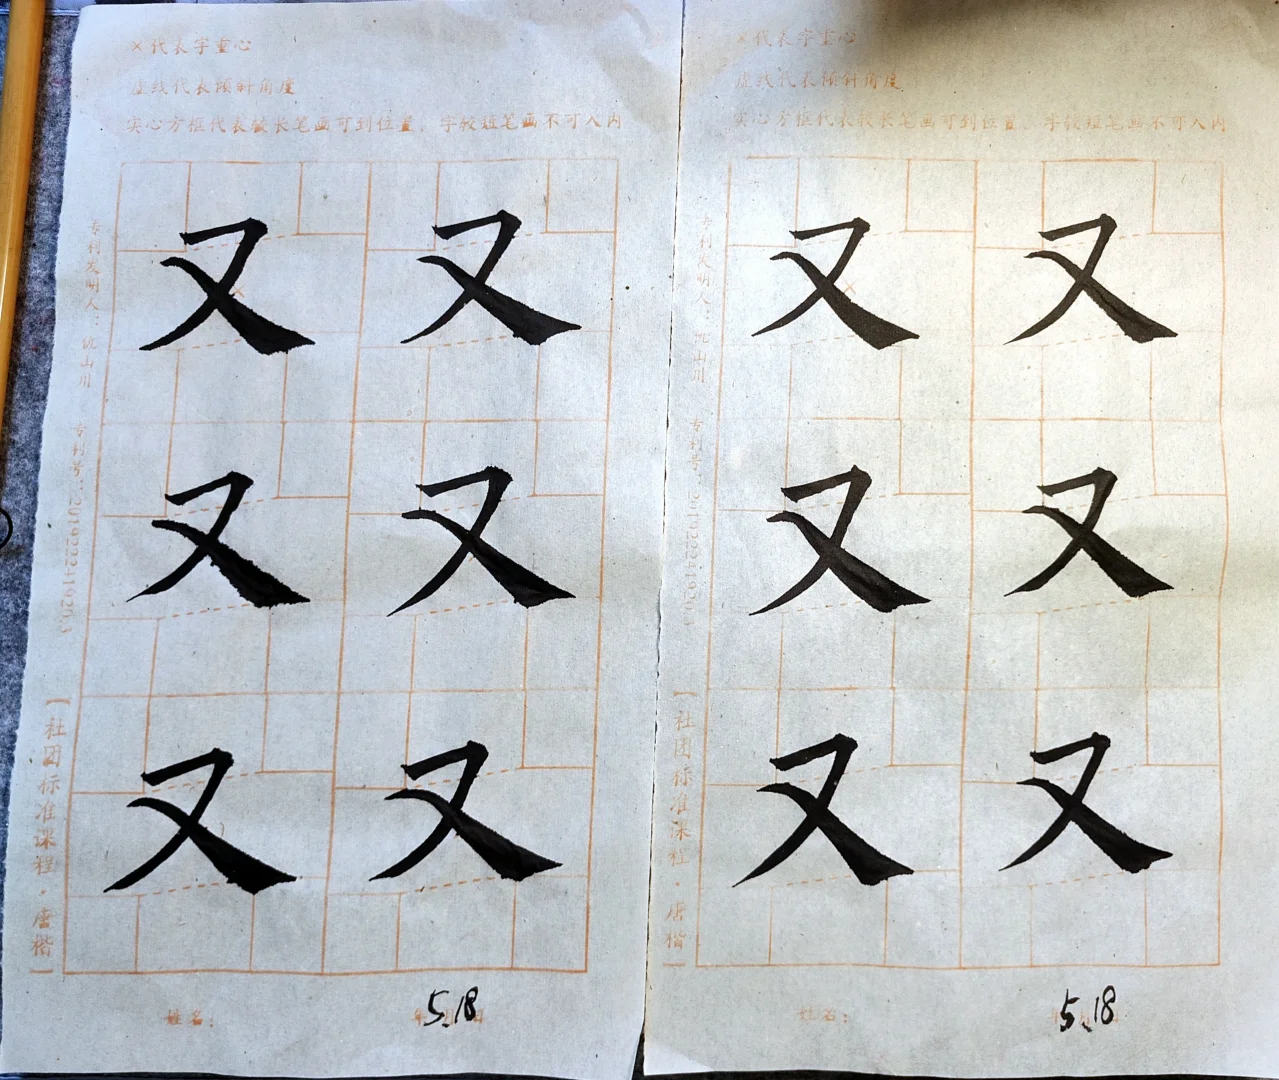 ×代表字重心
虚线代表倾斜角度
实心方框代表较长笔画可到位置，字较短笔画不可入内
专利发明人：沈山川
专利号：
【社团标准课程·唐楷】
又 又
又 又
又 又
姓名： 年 月 日
5.18
×代表字重心
虚线代表倾斜角度
实心方框代表较长笔画可到位置，字较短笔画不可入内
专利发明人：沈山川
专利号：
【社团标准课程·唐楷】
又 又
又 又
又 又
姓名：
5.18